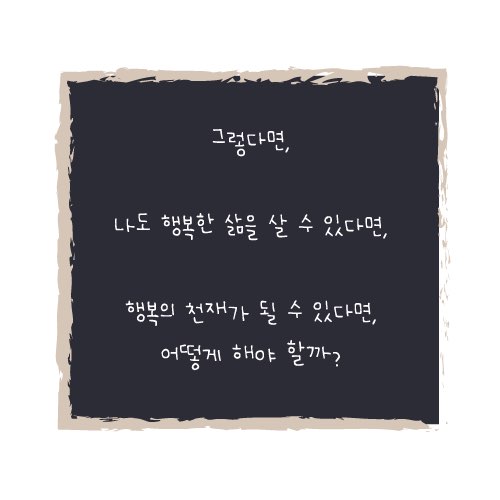 그렇다면,
나도 행복한 삶을 살 수 있다면,
행복의 천재가 될 수 있다면,
어떻게 해야 할까?